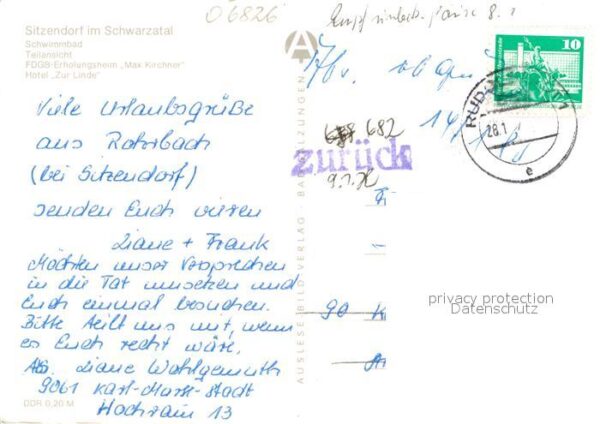 06826
Sitzendorf im Schwarzatal
Schwimmbad
Teilansicht
FDGB-Erholungsheim „Max Kirchner"
Hotel „Zur Linde"
Viele Urlaubsgrüße
aus Rohrbach
(bei Sitzendorf)
senden Euch
Liane + Frank
Möchten unser Versprechen
in die Tat umsetzen und
Euch einmal besuchen.
Bitte teilt uns mit, wenn
es Euch recht wäre.
Abs. Liane Wohlgemuth
9061 Karl-Marx-Stadt
Hochrain 13
DDR 0,20 M
AUSLESE-BILD-VERLAG · BAD SALZUNGEN
10
RUD
28.1
e
682
zurück
90
privacy protection
Datenschutz